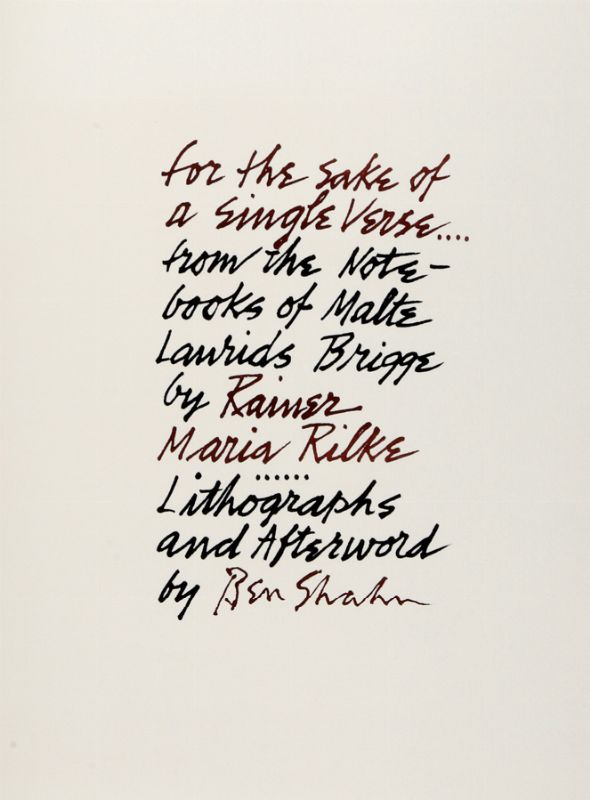 for the sake of
a single Verse....
from the Note-
books of Malte
Laurids Brigge
by Rainer
Maria Rilke
......
Lithographs
and Afterword
by Ben Shahn